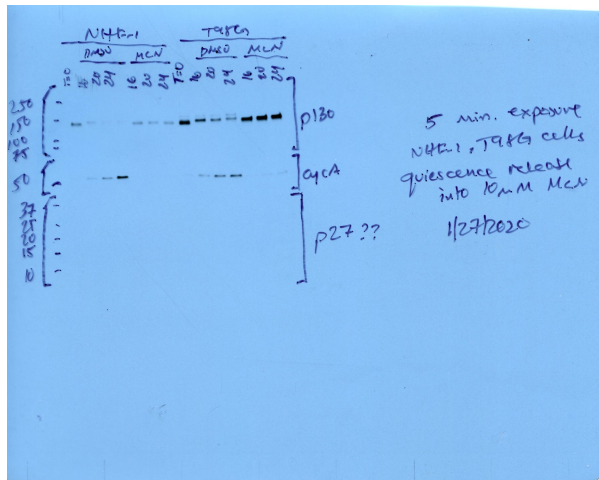 NHF-1 T98G
DMSO MCN DMSO MCN
T=0 16 20 24 16 20 24 T=0 16 20 24 16 20 24
250
150
100
75
p130
50
cycA
37
25
20
15
10
p27??
5 min. exposure
NHF-1, T98G cells
quiescence release
into 10mM MCN
1/27/2020